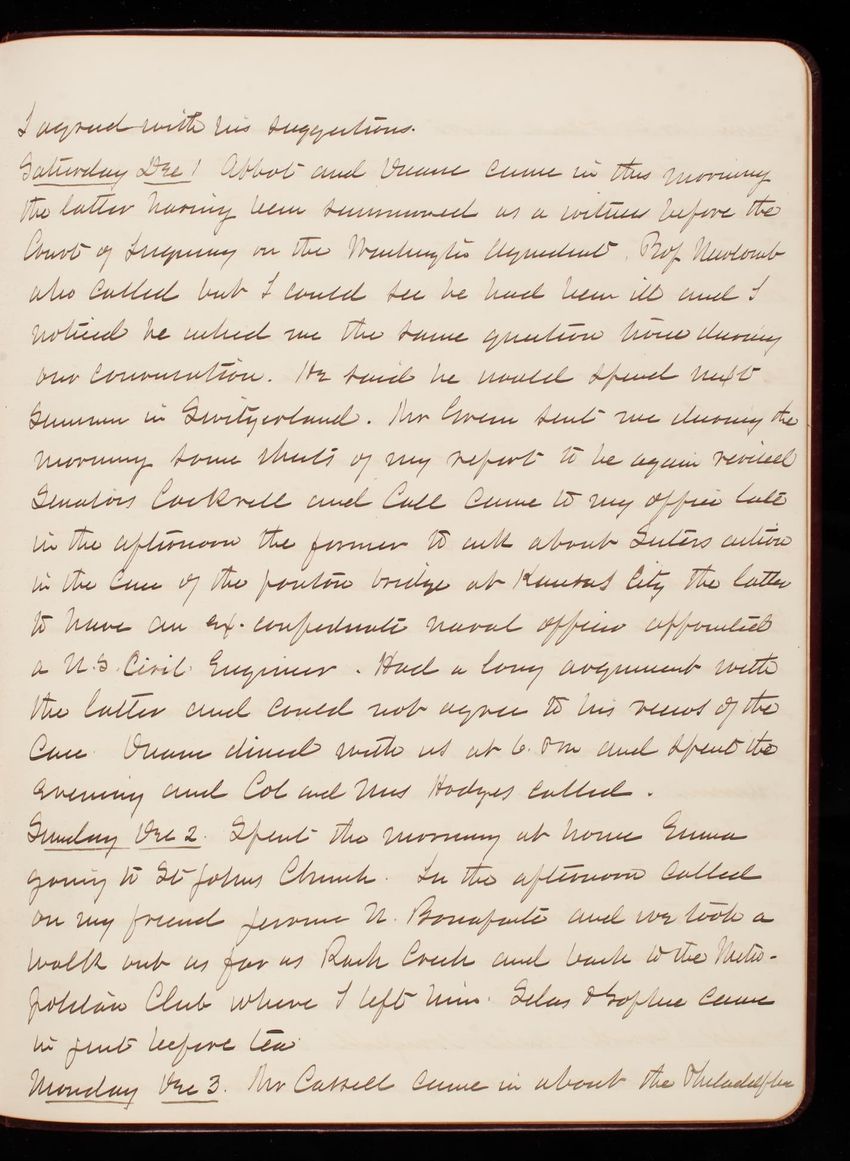 I agreed with his suggestions.
Saturday Dec 1 Abbot and Duane came in this morning
the latter having been summoned as a witness before the
Court of Inquiry on the Washington Aqueduct. Prof Newcomb
also called but I could see he had been ill and I
noticed he asked me the same question twice during
our conversation. He said he would spend next
Summer in Switzerland. Mr Green sent me during the
morning some sheets of my report to be again revised
Senators Cockrell and Call came to my office late
in the afternoon the former to ask about Suters action
in the case of the ponton bridge at Kansas City the latter
to have an ex-confederate naval officer appointed
a U.S. Civil Engineer. Had a long argument with
the latter and could not agree to his views of the
case. Duane dined with us at 6. PM and spent the
evening and Col and Mrs Hodges called.
Sunday Dec 2. Spent the morning at home Emma
going to St Johns Church. In the afternoon called
on my friend Jerome N. Bonaparte and we took a
walk out as far as Rock Creek and back to the Metro-
politan Club where I left him. Silas & Sophie came
in just before tea
Monday Dec 3. Mr Cassell came in about the Philadelphia